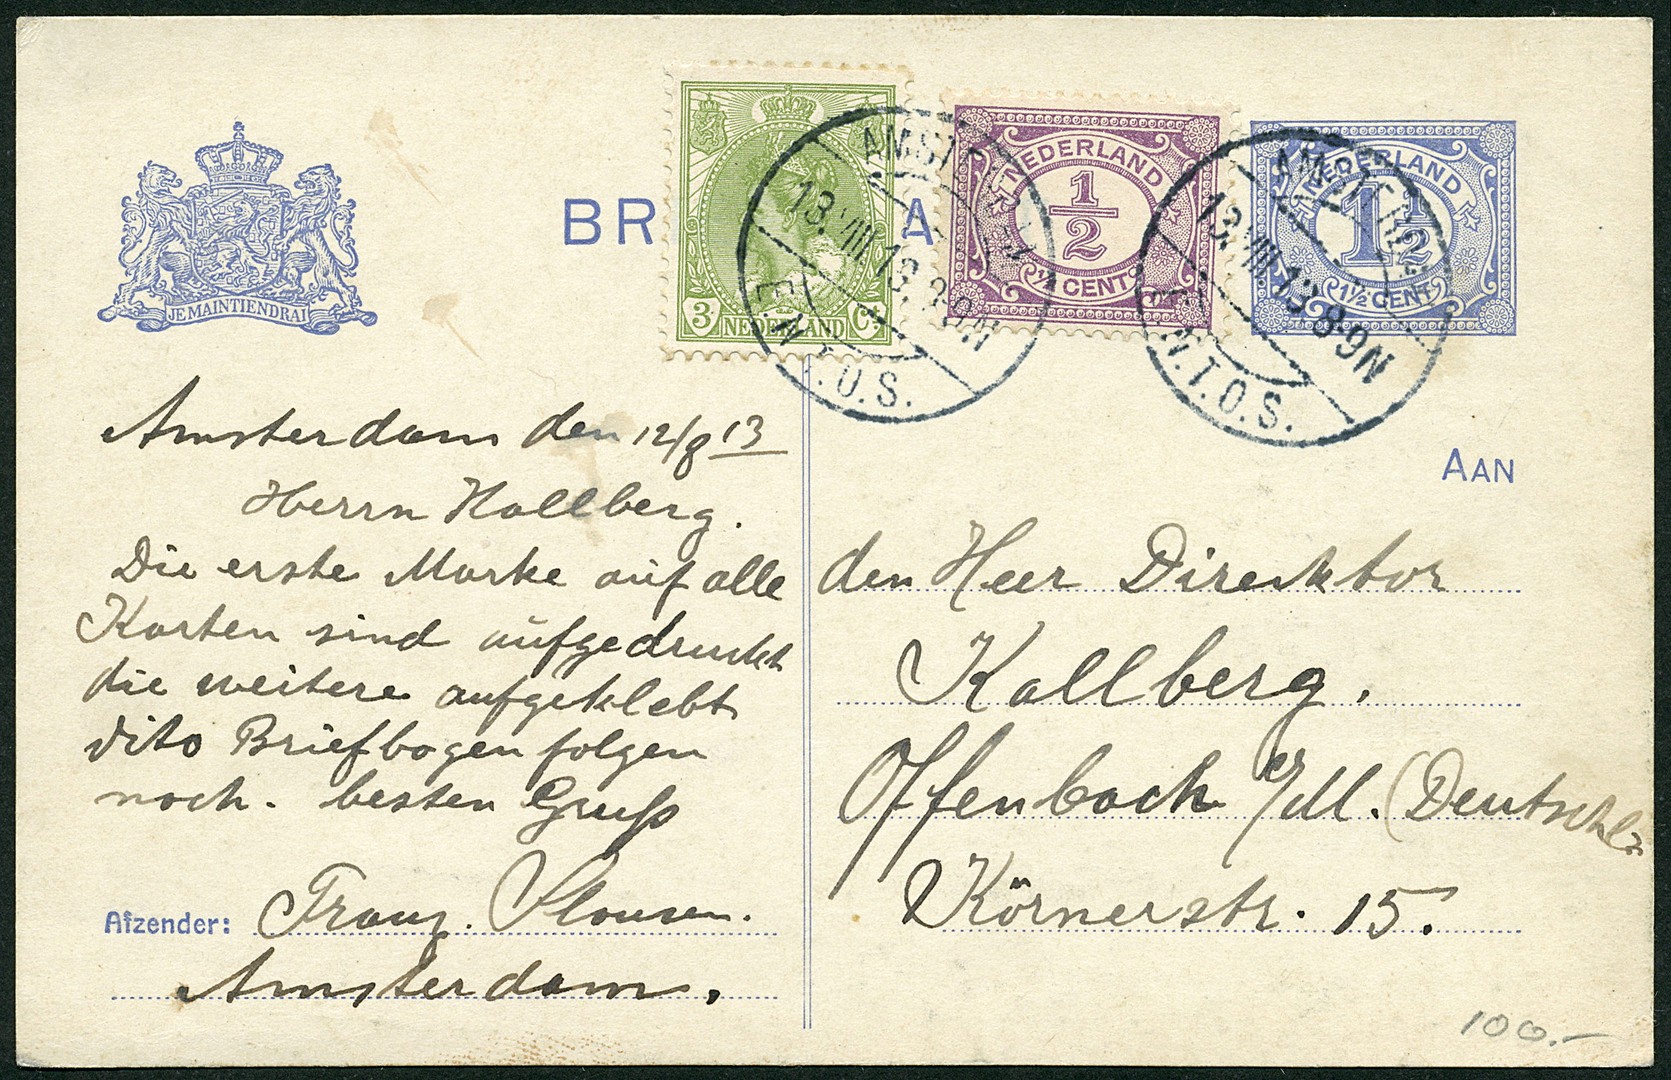 JE MAINTIENDRAI
BR A
3 Ct
NEDERLAND
NEDERLAND
1/2
½ CENT
NEDERLAND
1 1/2
1½ CENT
AMSTERDAM
13.VIII.13. 8-9N
E.N.T.O.S.
AMSTERDAM
13.VIII.13 8-9N
E.N.T.O.S.
Amsterdam den 12/8 13
Herrn Kallberg.
Die erste Marke auf alle
Karten sind aufgedruckt
die weitere aufgeklebt
dito Briefbogen folgen
noch. besten Gruß
Afzender: Franz.
Amsterdam.
AAN
den Heer Direktor
Kallberg.
Offenbach a/M. (Deutschl
Körnerstr. 15.
100.-